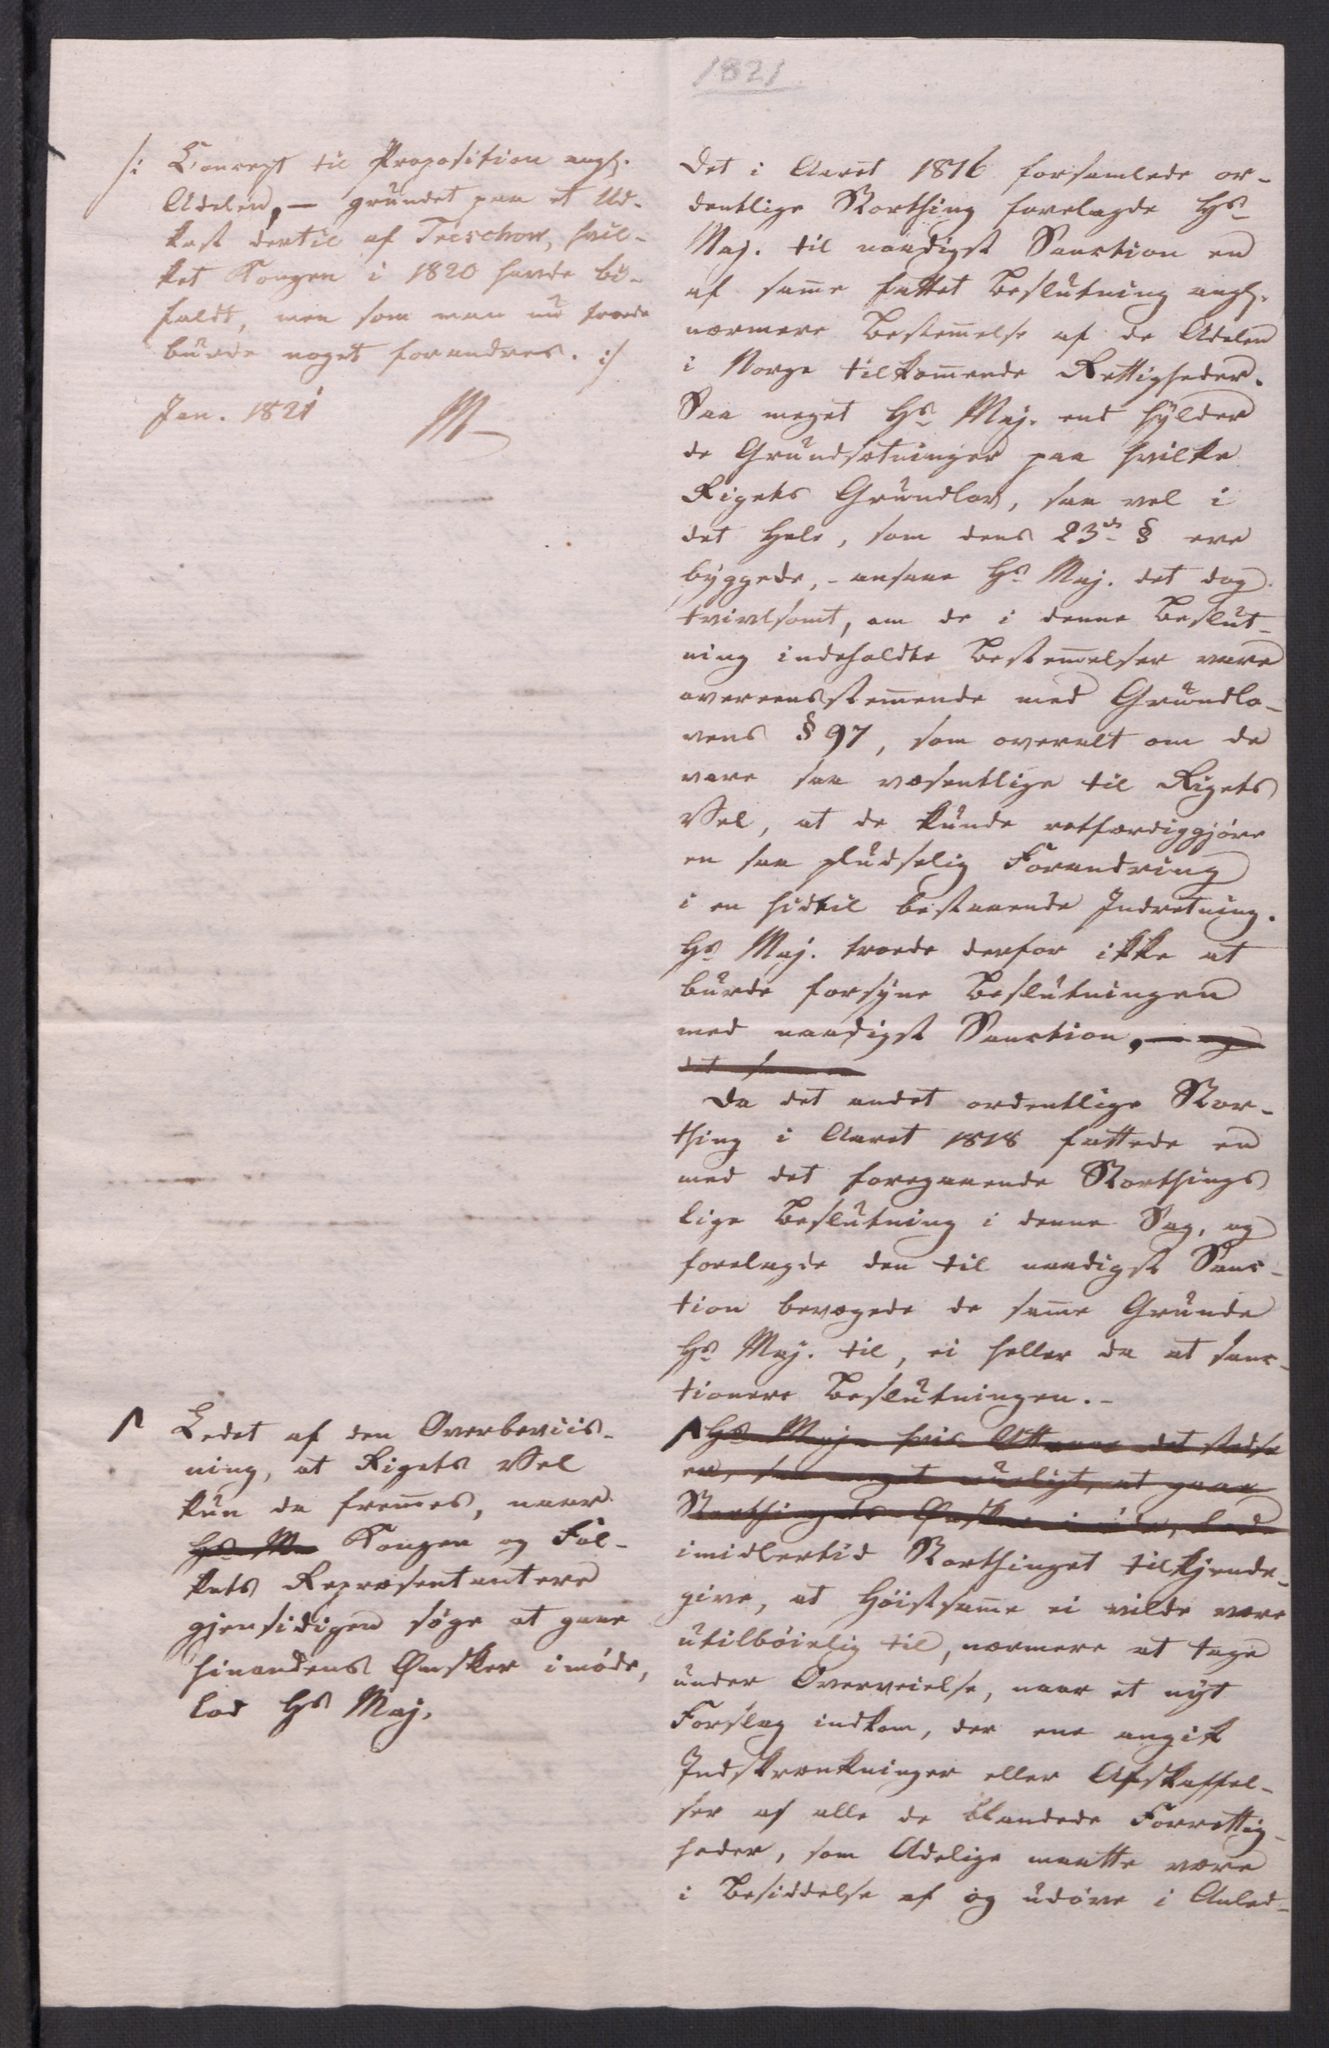 1821
/: Concept til Proposition angl.
Adelen, — grundet paa et Ud-
kast dertil af Treschow, hvil-
ket Kongen i 1820 havde bi-
faldt, men som man nu troede
burde noget forandres. :/
Jan. 1821
Det i Aaret 1816 forsamlede or-
dentlige Storthing forelagde Hs
Maj. til naadigst Sanction en
af samme fattet Beslutning angl.
nærmere Bestemmelse af de Adelen
i Norge tilkommende Rettigheder.
Saa meget Hs Maj. end hylder
de Grundsætninger paa hvilke
Rigets Grundlov, saa vel i
det Hele, som dens 23de § ere
byggede, - ansaae Hs Maj. det dog
tvivlsomt, om de i denne Beslut-
ning indeholdte Bestemmelser vare
overeensstemmende med Grundlo-
vens § 97, som overalt om de
vare saa væsentlige til Rigets
Vel, at de kunde retfærdiggjøre
en saa pludselig Forandring
i en hidtil bestaaende Indretning.
Hs Maj. troede derfor ikke at
burde forsyne Beslutningen
med naadigst Sanction, — og
det samme
Da det andet ordentlige Stor-
thing i Aaret 1818 fattede en
med det foregaaende Storthings
lige Beslutning i denne Sag, og
forelagde den til naadigst Sanc-
tion bevægede de samme Grunde
Hs Maj. til, ei heller da at sanc-
tionere Beslutningen. -
Hs Maj. hvis Attraae det stedse
er, saa meget mueligt, at gaae
Storthingets Ønsker imøde, lod
imidlertid Storthinget tilkjende-
give, at Høistsamme ei vilde være
utilbøielig til, nærmere at tage
under Overveielse, naar et nyt
Forslag indkom, der ene angik
Indskrænkninger eller Afskaffel-
ser af alle de Slags Forrettig-
heder, som Adelige maatte være
i Besiddelse af og udøve i Anled-
Ledet af den Overbeviis-
ning, at Rigets Vel
kun da fremmes, naar
Hs Ma Kongen og Fol-
kets Repræsentantere
gjensidigen søge at gaae
hinandens Ønsker imøde,
lod Hs Maj.